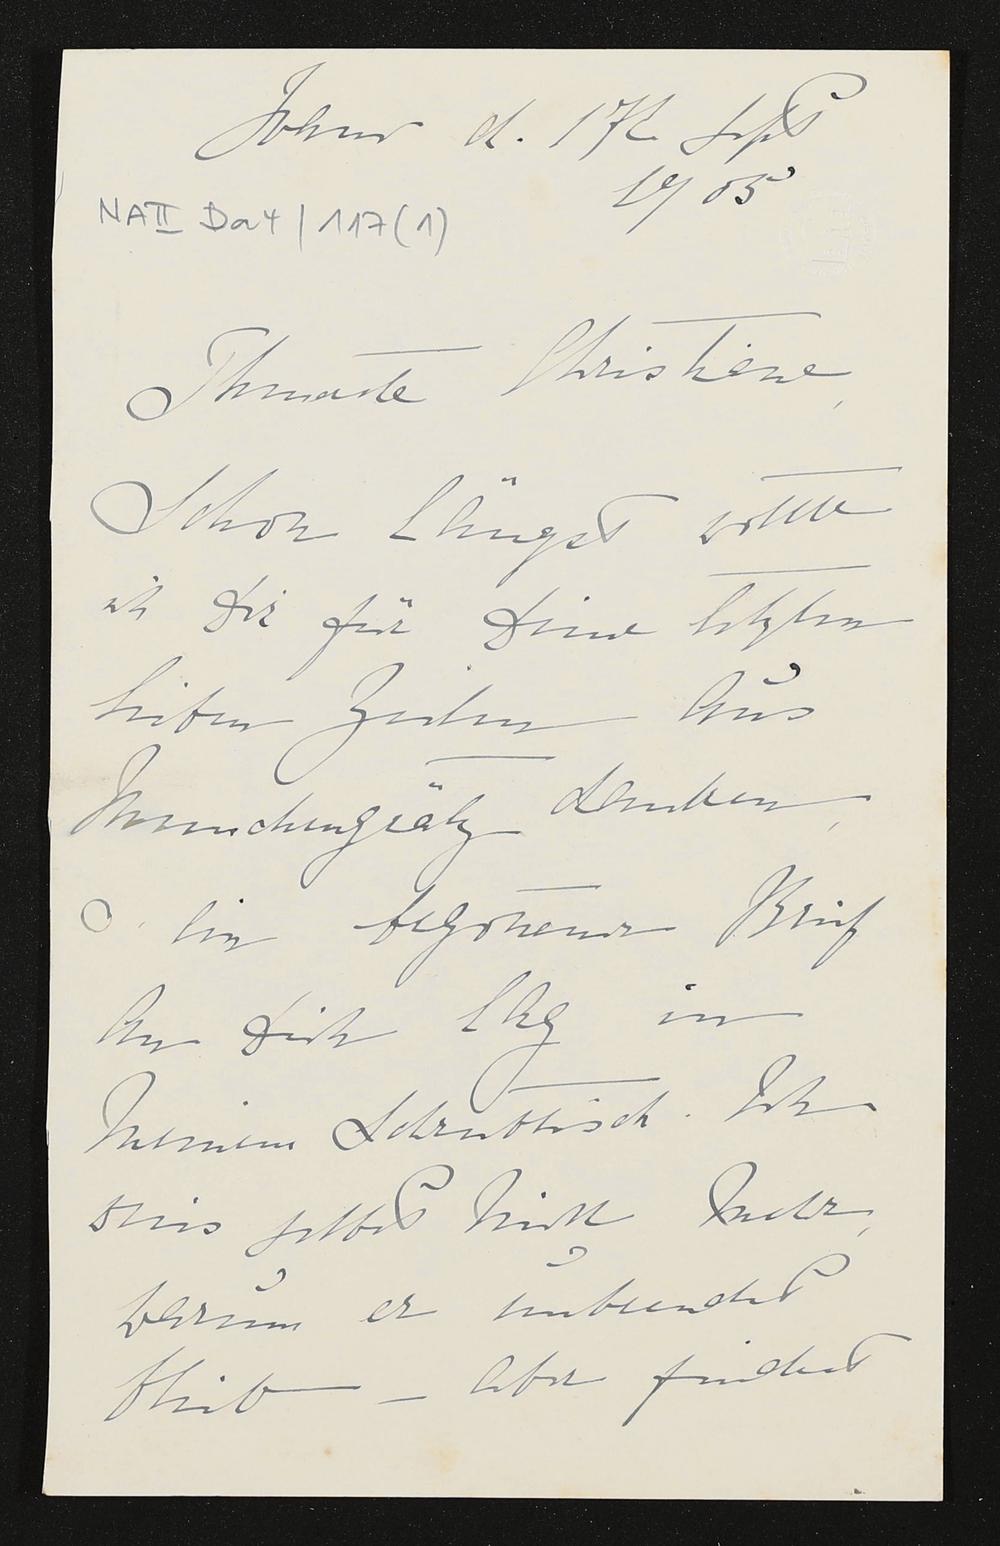 d. 17t. Sept
1905
NA II Da 4 / 117 (1)
Christiane,
Schon längst wollte
ich Dir für Deine letzten
lieben Zeilen aus
Münchengrätz danken,
ein begonnener Brief
an Dich lag in
meinem Schreibtisch. Ich
weis selbst nicht mehr,
warum er unbeendet
blieb – aber findest